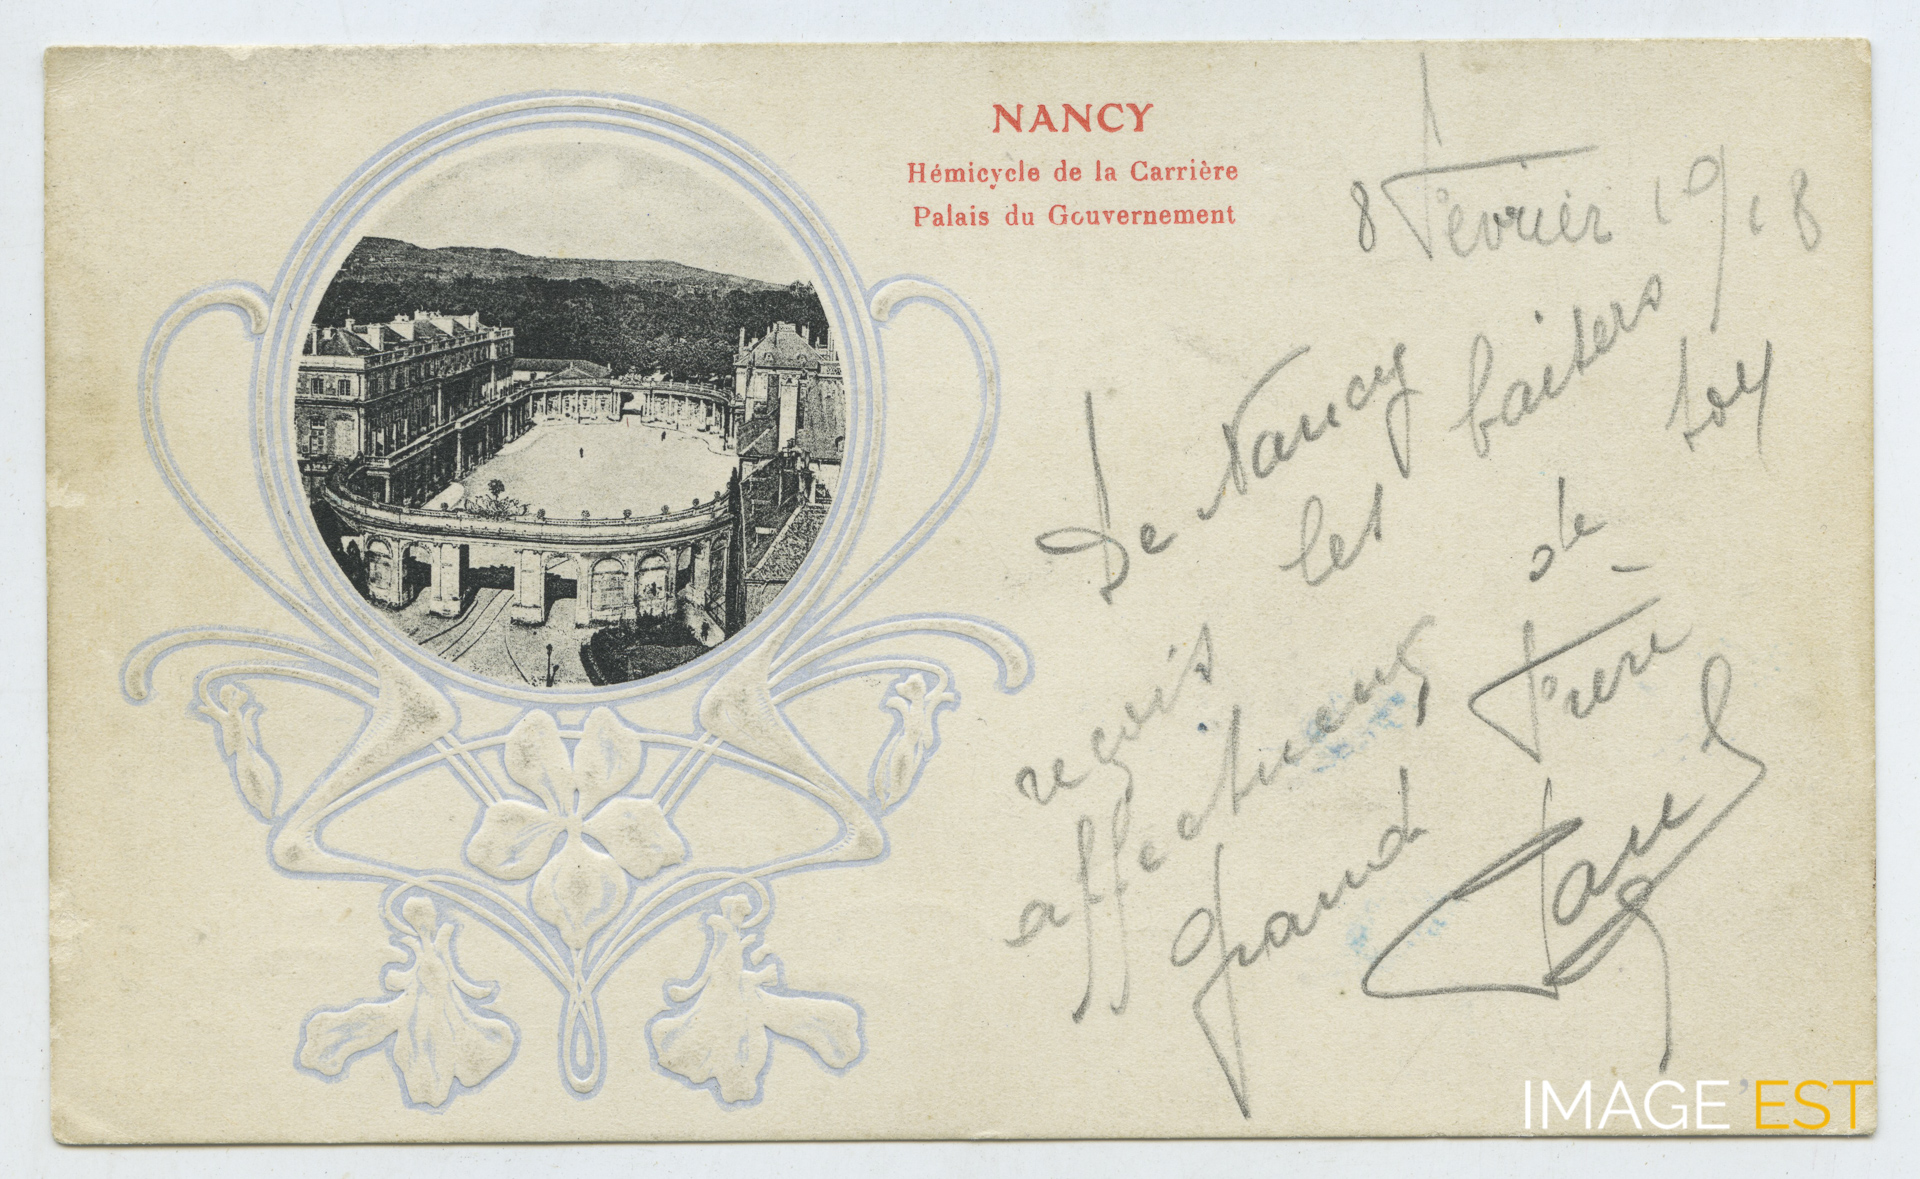 NANCY
Hémicycle de la Carrière
Palais du Gouvernement
8 Février 1918
De Nancy reçois
les baisers
affectueux de toy
grand Frere
Paul
IMAGE EST